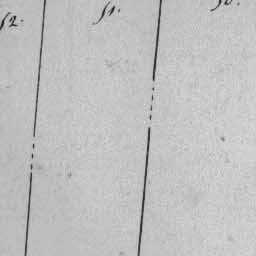 52. 51. 50.